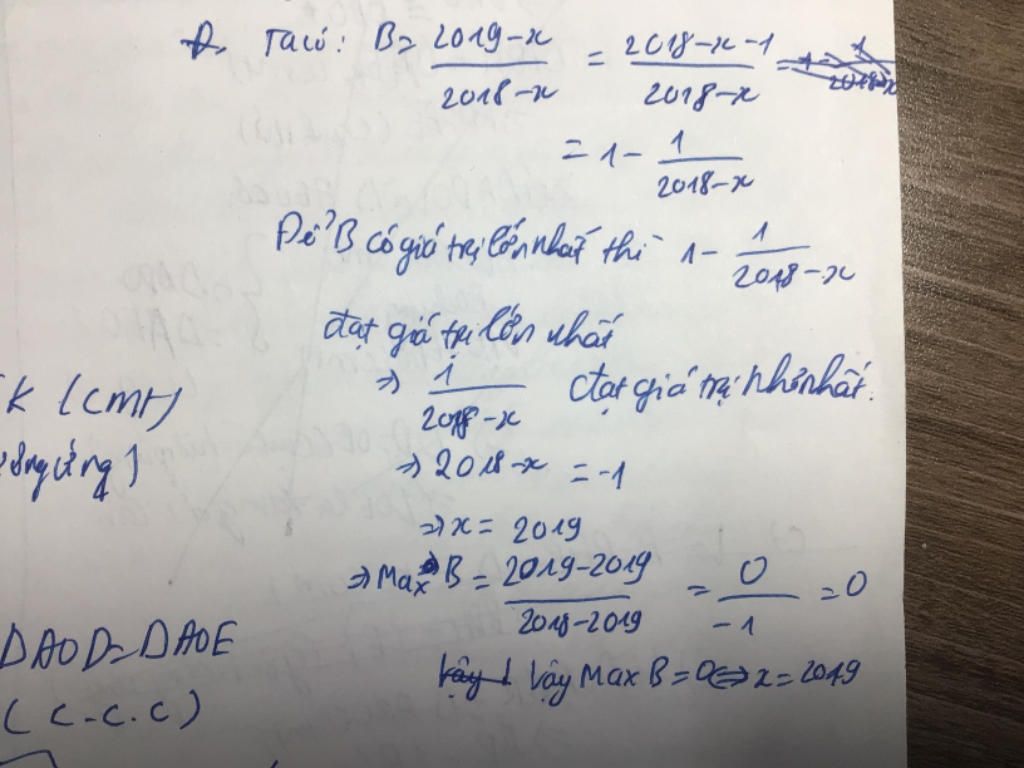 Ta có: B = 2019-x / 2018-x = 2018-x-1 / 2018-x
= 1 - 1 / 2018-x
Để B có giá trị lớn nhất thì 1 - 1 / 2018-x
đạt giá trị lớn nhất
⇒ 1 / 2018-x đạt giá trị nhỏ nhất.
K (cmt)
⇒ 2018-x = -1
ứng)
⇒ x = 2019
⇒ Max B = 2019-2019 / 2018-2019 = 0 / -1 = 0
DAOD = DAOE
Vậy Max B = 0 ⇔ x = 2019
(c-c.c)